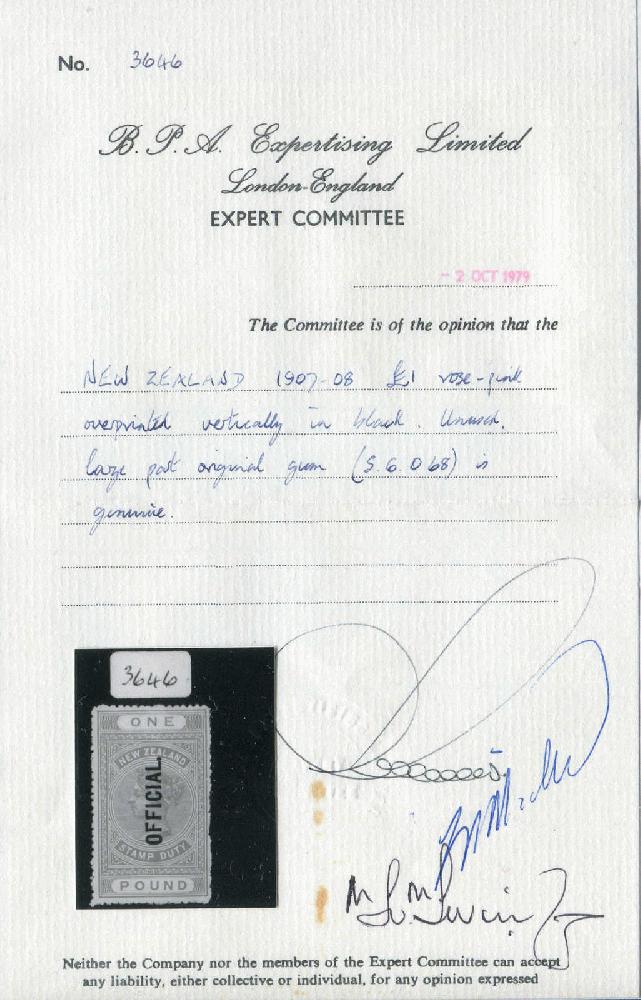 No. 3646
B.P.A. Expertising Limited
London-England
EXPERT COMMITTEE
- 2 OCT 1979
The Committee is of the opinion that the
NEW ZEALAND 1907-08 £1 rose-pink
overprinted vertically in black. Unused,
large part original gum (S.G.068) is
genuine.
3646
ONE
NEW ZEALAND
OFFICIAL
STAMP DUTY
POUND
Neither the Company nor the members of the Expert Committee can accept
any liability, either collective or individual, for any opinion expressed